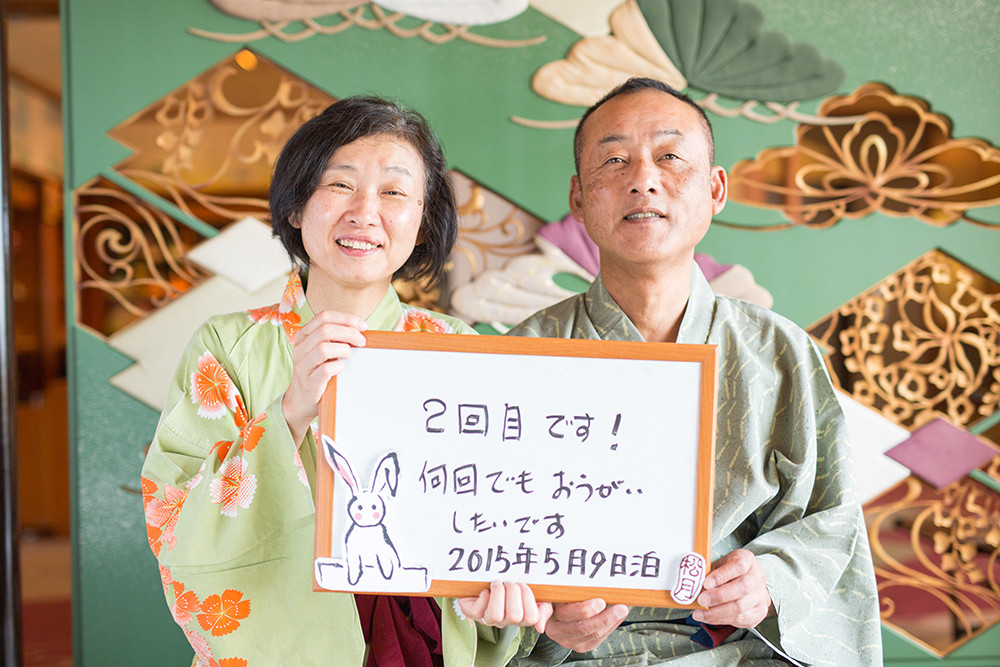 2回目です!
何回でもおうがい
したいです
2015年5月9日泊
松月